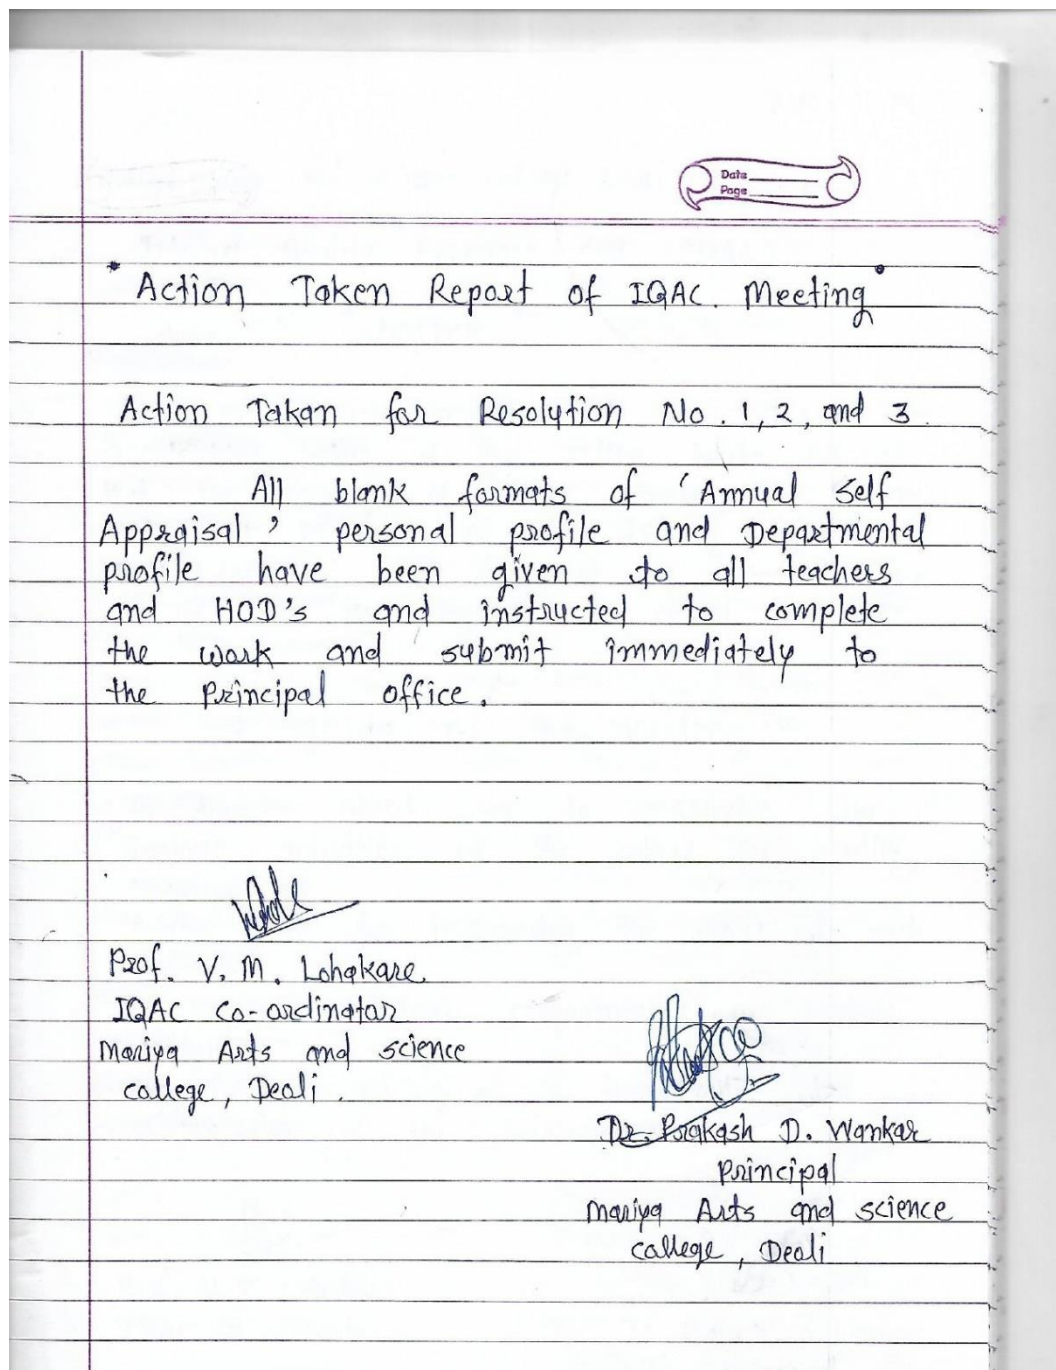 Date
Page
"Action Taken Report of IQAC. Meeting"
Action Takan for Resolution No. 1, 2, and 3.
All blank formats of 'Annual Self
Appraisal' personal profile and Departmental
profile have been given to all teachers
and HOD's and instructed to complete
the work and submit immediately to
the Principal office.
Prof. V. M. Lohakare
IQAC Co-ordinator
Mariya Arts and science
college, Deoli.
Dr. Prakash D. Wankar
Principal
Mariya Arts and science
college, Deoli